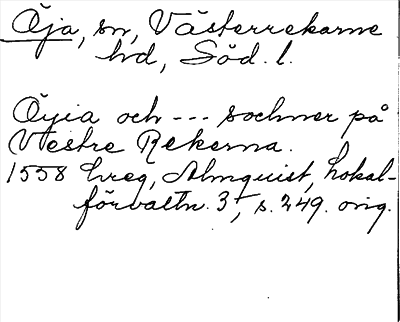 Öja, sn, Västerrekarne
hd, Söd. l.
Öyia och --- sochner på
Vestre Rekerna.
1558 hreg, Almquist, Lokal-
förvaltn. 3, s. 249. orig.